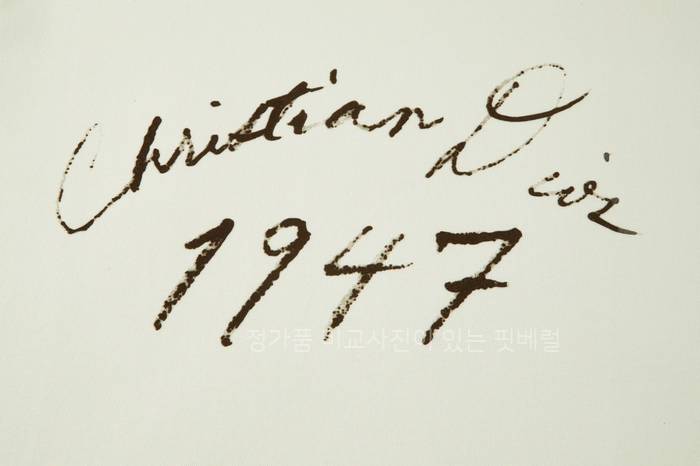 Christian Dior
1947
정가품 비교사진이 있는 핏베럴